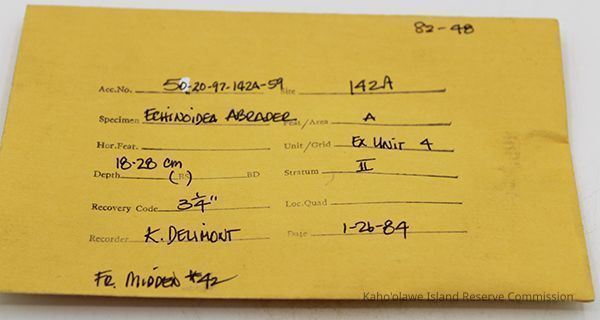 82-48
Acc.No. 50-20-97-142A-59 Site 142A
Specimen ECHINOIDEA ABRADER Feat./Area A
Hor.Feat. Unit/Grid Ex. UNIT 4
Depth 18-28 cm (BS) BD Stratum II
Recovery Code 3 1/4" Loc.Quad
Recorder K. DELIMONT Date 1-26-84
FR. MIDDEN #42
Kaho'olawe Island Reserve Commission